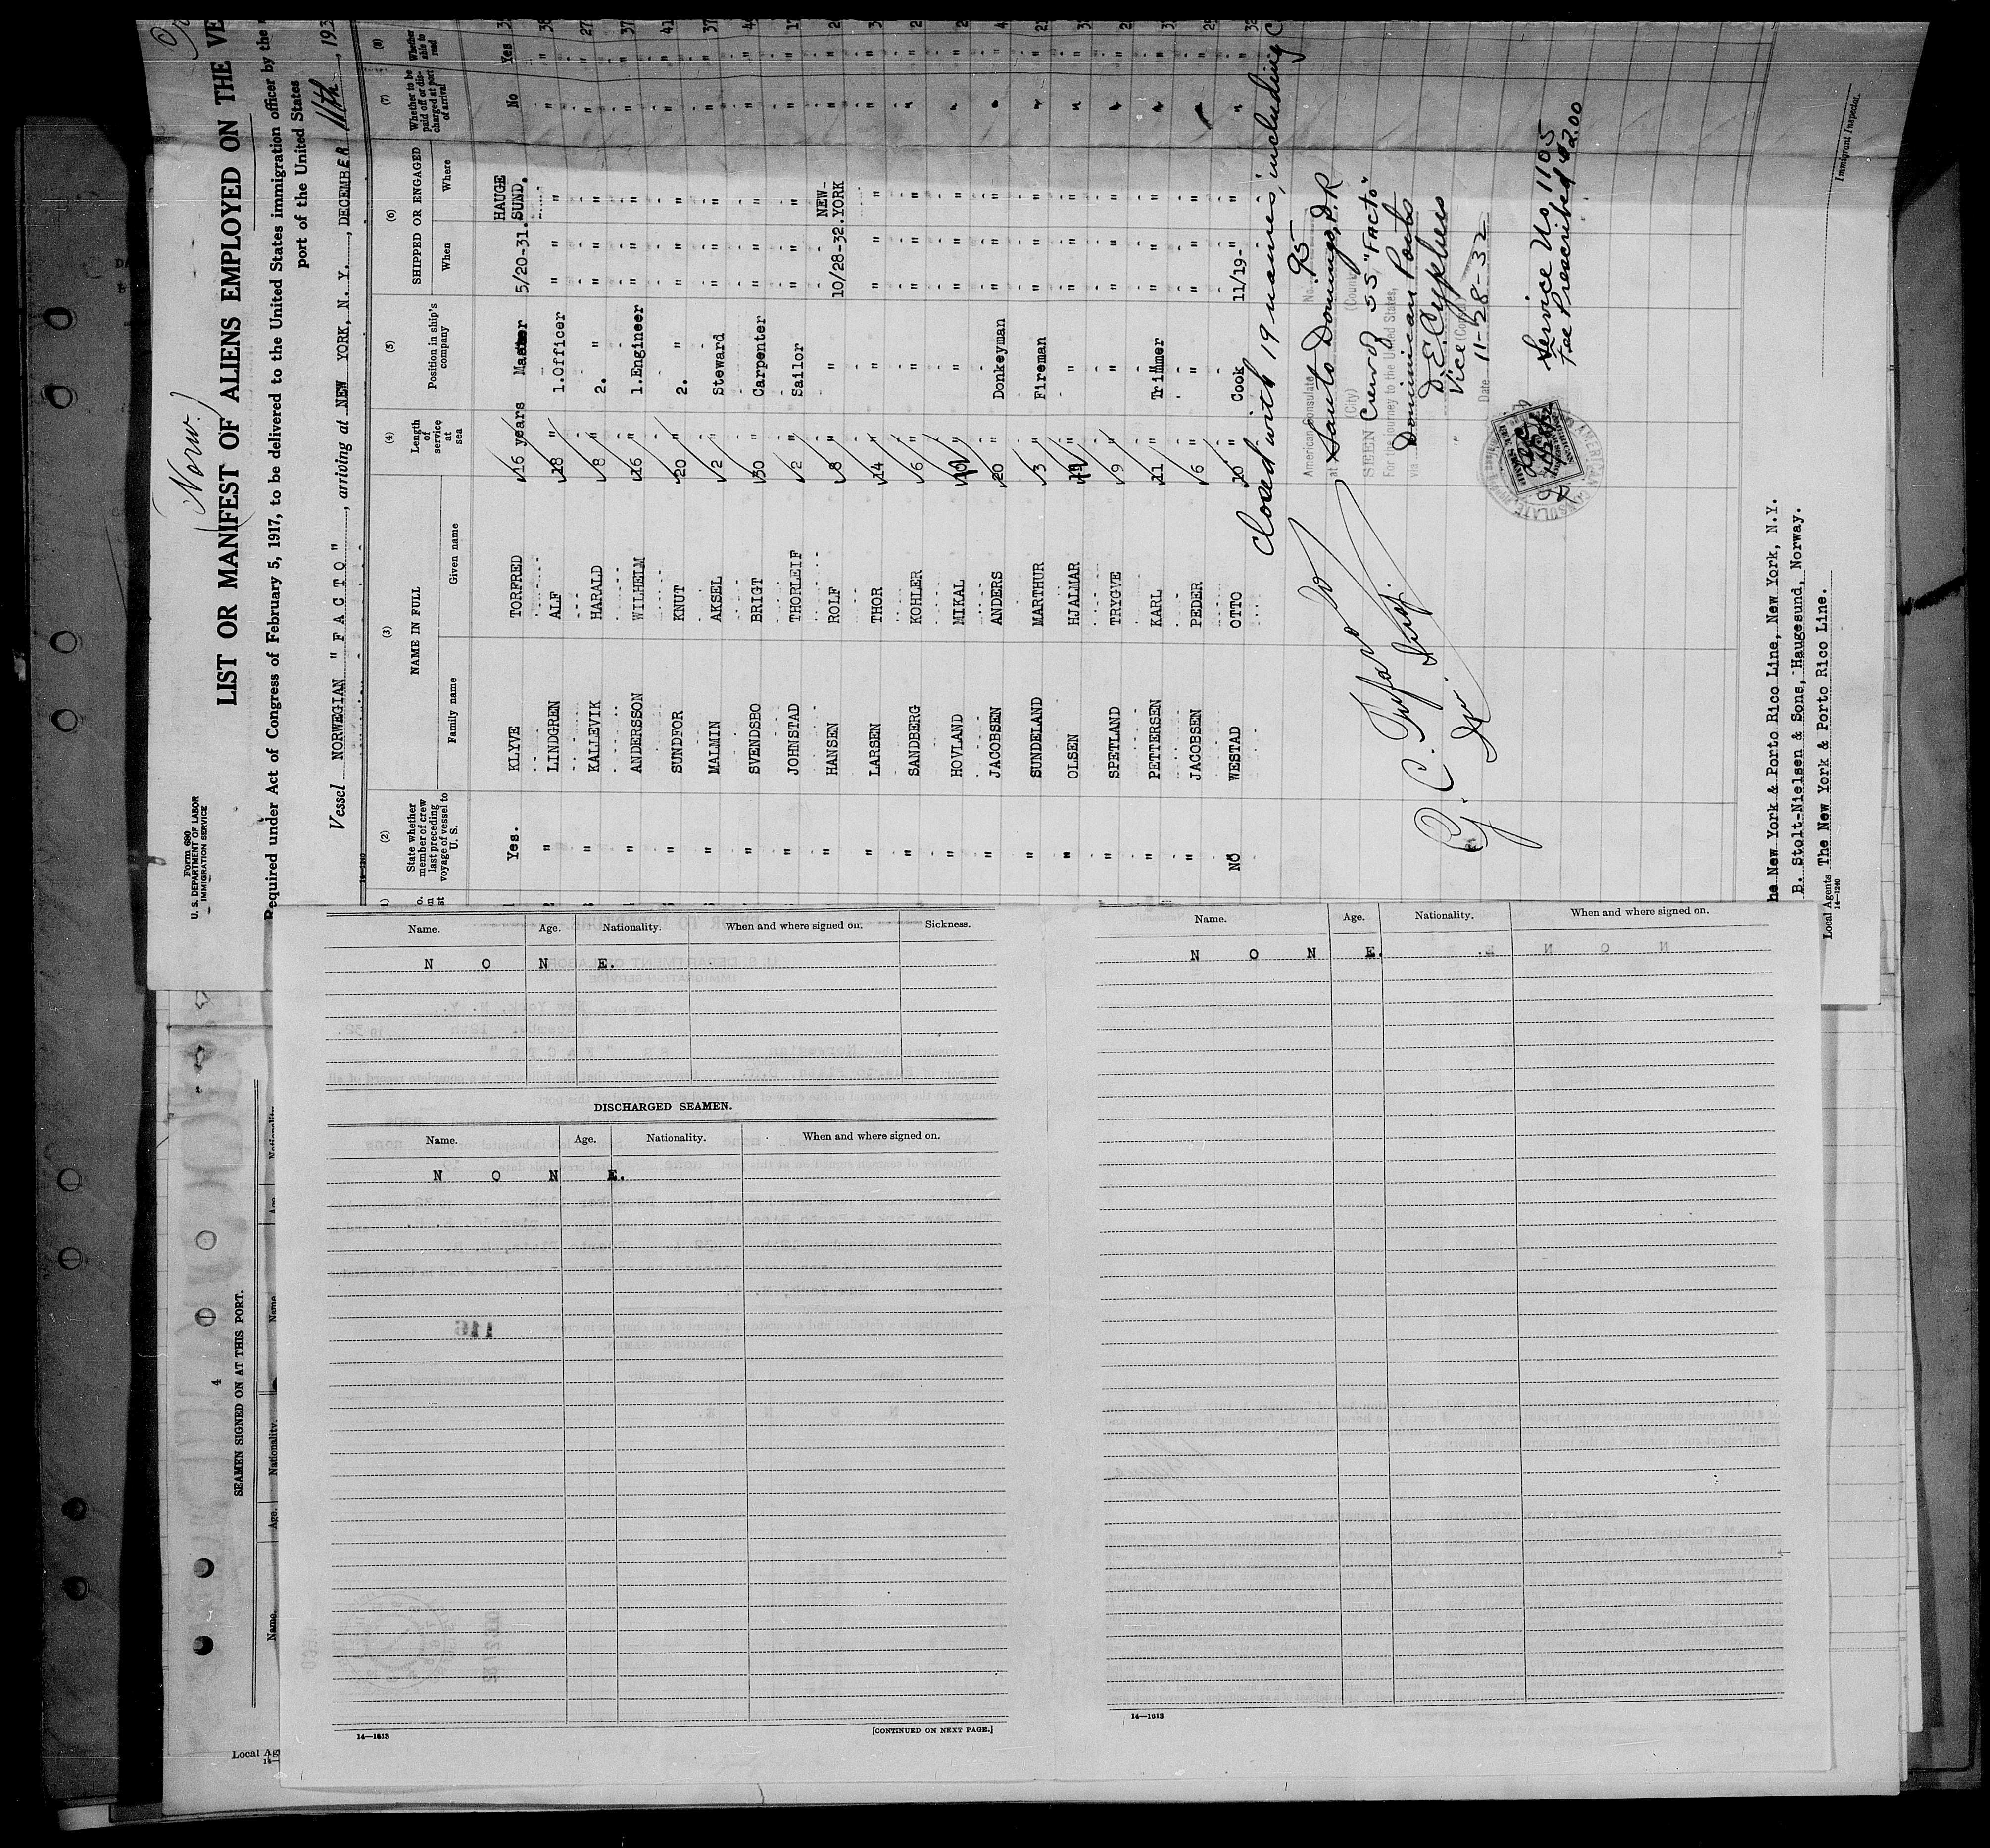 (Norw.)
Form 680
U. S. DEPARTMENT OF LABOR
IMMIGRATION SERVICE
LIST OR MANIFEST OF ALIENS EMPLOYED ON THE VE
Required under Act of Congress of February 5, 1917, to be delivered to the United States immigration officer by the
port of the United States
Vessel NORWEGIAN "F A C T O", arriving at NEW YORK, N. Y., DECEMBER 11th, 193
(2) (3) (4) (5) (6) (7) (8)
State whether member of crew last preceding voyage of vessel to U. S.
NAME IN FULL
Family name Given name
Length of service at sea
Position in ship's company
SHIPPED OR ENGAGED
When Where
Whether to be paid off or discharged at port of arrival
Whether able to read
Yes. KLYVE TORFRED 16 years Master 5/20-31. HAUGE SUND. No Yes
" LINDGREN ALF 18 " 1.Officer " " " "
" KALLEVIK HARALD 8 " 2. " " " " "
" ANDERSSON WILHELM 26 " 1.Engineer " " " "
" SUNDFOR KNUT 20 " 2. " " " " "
" MALMIN AKSEL 2 " Steward " " " "
" SVENDSBO BRIGT 30 " Carpenter " " " "
" JOHNSTAD THORLEIF 2 " Sailor " " " "
" HANSEN ROLF 8 " " 10/28-32. NEW-YORK " "
" LARSEN THOR 14 " " " " " "
" SANDBERG KOHLER 6 " " " " " "
" HOVLAND MIKAL " " " " " "
" JACOBSEN ANDERS 20 " Donkeyman " " " "
" SUNDELAND MARTHUR 3 " Fireman " " " "
" OLSEN HJALMAR " " " " " "
" SPETLAND TRYGVE 9 " " " " " "
" PETTERSEN KARL 11 " Trimmer " " " "
" JACOBSEN PEDER 6 " " " " " "
No WESTAD OTTO 10 " Cook 11/19-" " " "
Closed with 19 names, including
American Consulate No. 95
at Santo Domingo, D.R
(City) (Count
SEEN Crew of SS "Facto"
For the journey to the United States,
via Dominican Ports
Vice (Con
Date 11-28-32
AMERICAN CONSULATE
Service No. 1105
Fee Prescribed $2.00
Immigrant Inspector.
he New York & Porto Rico Line, New York, N.Y.
B. Stolt-Nielsen & Sons, Haugesund, Norway.
Local Agents The New York & Porto Rico Line.
14—1240
Name. Age. Nationality. When and where signed on. Sickness.
N O N E.
DISCHARGED SEAMEN.
Name. Age. Nationality. When and where signed on.
N O N E.
14—1013
[CONTINUED ON NEXT PAGE.]
Name. Age. Nationality. When and where signed on.
N O N E.
14—1013
4
SEAMEN SIGNED ON AT THIS PORT.
Name. Age. Nationality. Name. Age. Nationality.
Local Ag